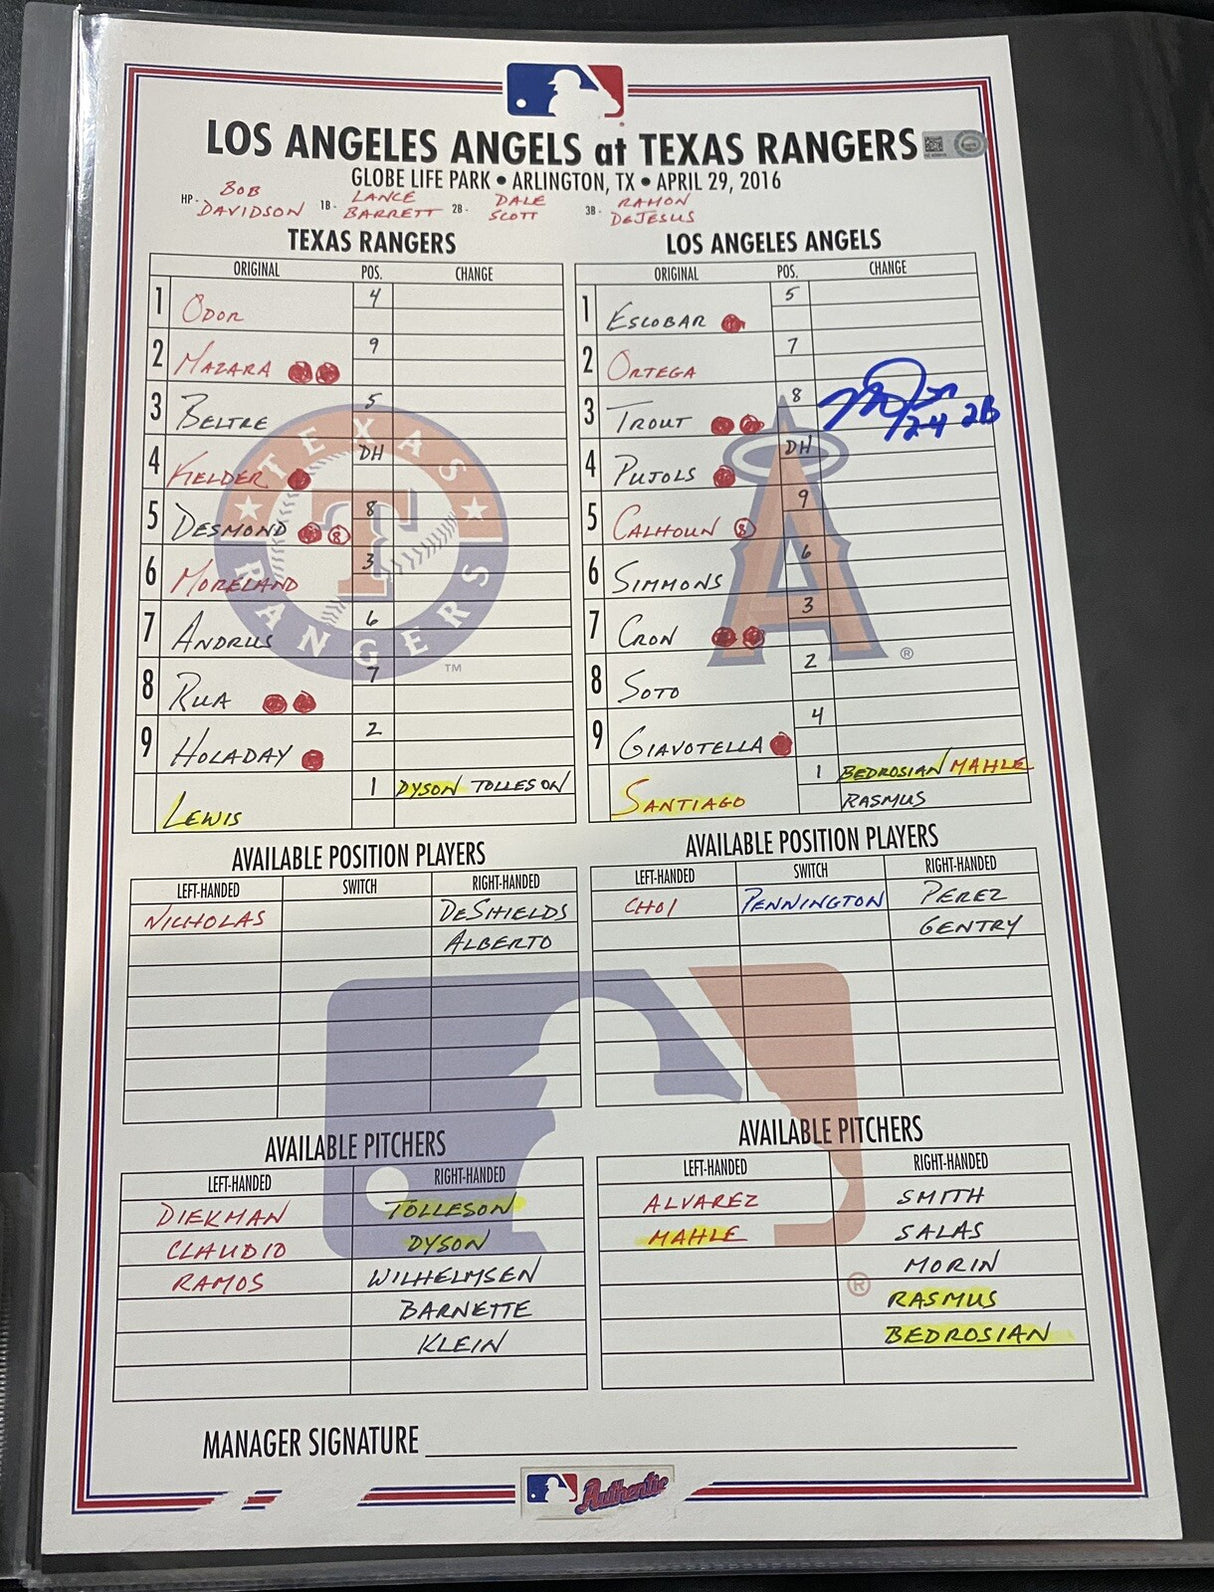 LOS ANGELES ANGELS at TEXAS RANGERS
GLOBE LIFE PARK • ARLINGTON, TX • APRIL 29, 2016
HP- BOB DAVIDSON 1B- LANCE BARRETT 2B- DALE SCOTT 3B- RAMON DeJESUS
TEXAS RANGERS
ORIGINAL POS. CHANGE
1 ODOR 4
2 MAZARA 9
3 BELTRE 5
4 FIELDER DH
5 DESMOND 8 8
6 MORELAND 3
7 ANDRUS 6
8 RUA 7
9 HOLADAY 2
LEWIS 1 DYSON TOLLESON
TEXAS RANGERS
T
TM
LOS ANGELES ANGELS
ORIGINAL POS. CHANGE
1 ESCOBAR 5
2 ORTEGA 7
3 TROUT 8 2-4 2B
4 PUJOLS DH
5 CALHOUN 8 9
6 SIMMONS 6
7 CRON 3
8 SOTO 2
9 GIAVOTELLA 4
SANTIAGO 1 BEDROSIAN MAHLE
RASMUS
A
®
AVAILABLE POSITION PLAYERS
LEFT-HANDED SWITCH RIGHT-HANDED
NICHOLAS DeSHIELDS
ALBERTO
AVAILABLE POSITION PLAYERS
LEFT-HANDED SWITCH RIGHT-HANDED
CHOI PENNINGTON PEREZ
GENTRY
AVAILABLE PITCHERS
LEFT-HANDED RIGHT-HANDED
DIEKMAN TOLLESON
CLAUDIO DYSON
RAMOS WILHELMSEN
BARNETTE
KLEIN
AVAILABLE PITCHERS
LEFT-HANDED RIGHT-HANDED
ALVAREZ SMITH
MAHLE SALAS
MORIN
RASMUS
BEDROSIAN
®
MANAGER SIGNATURE
Authentic